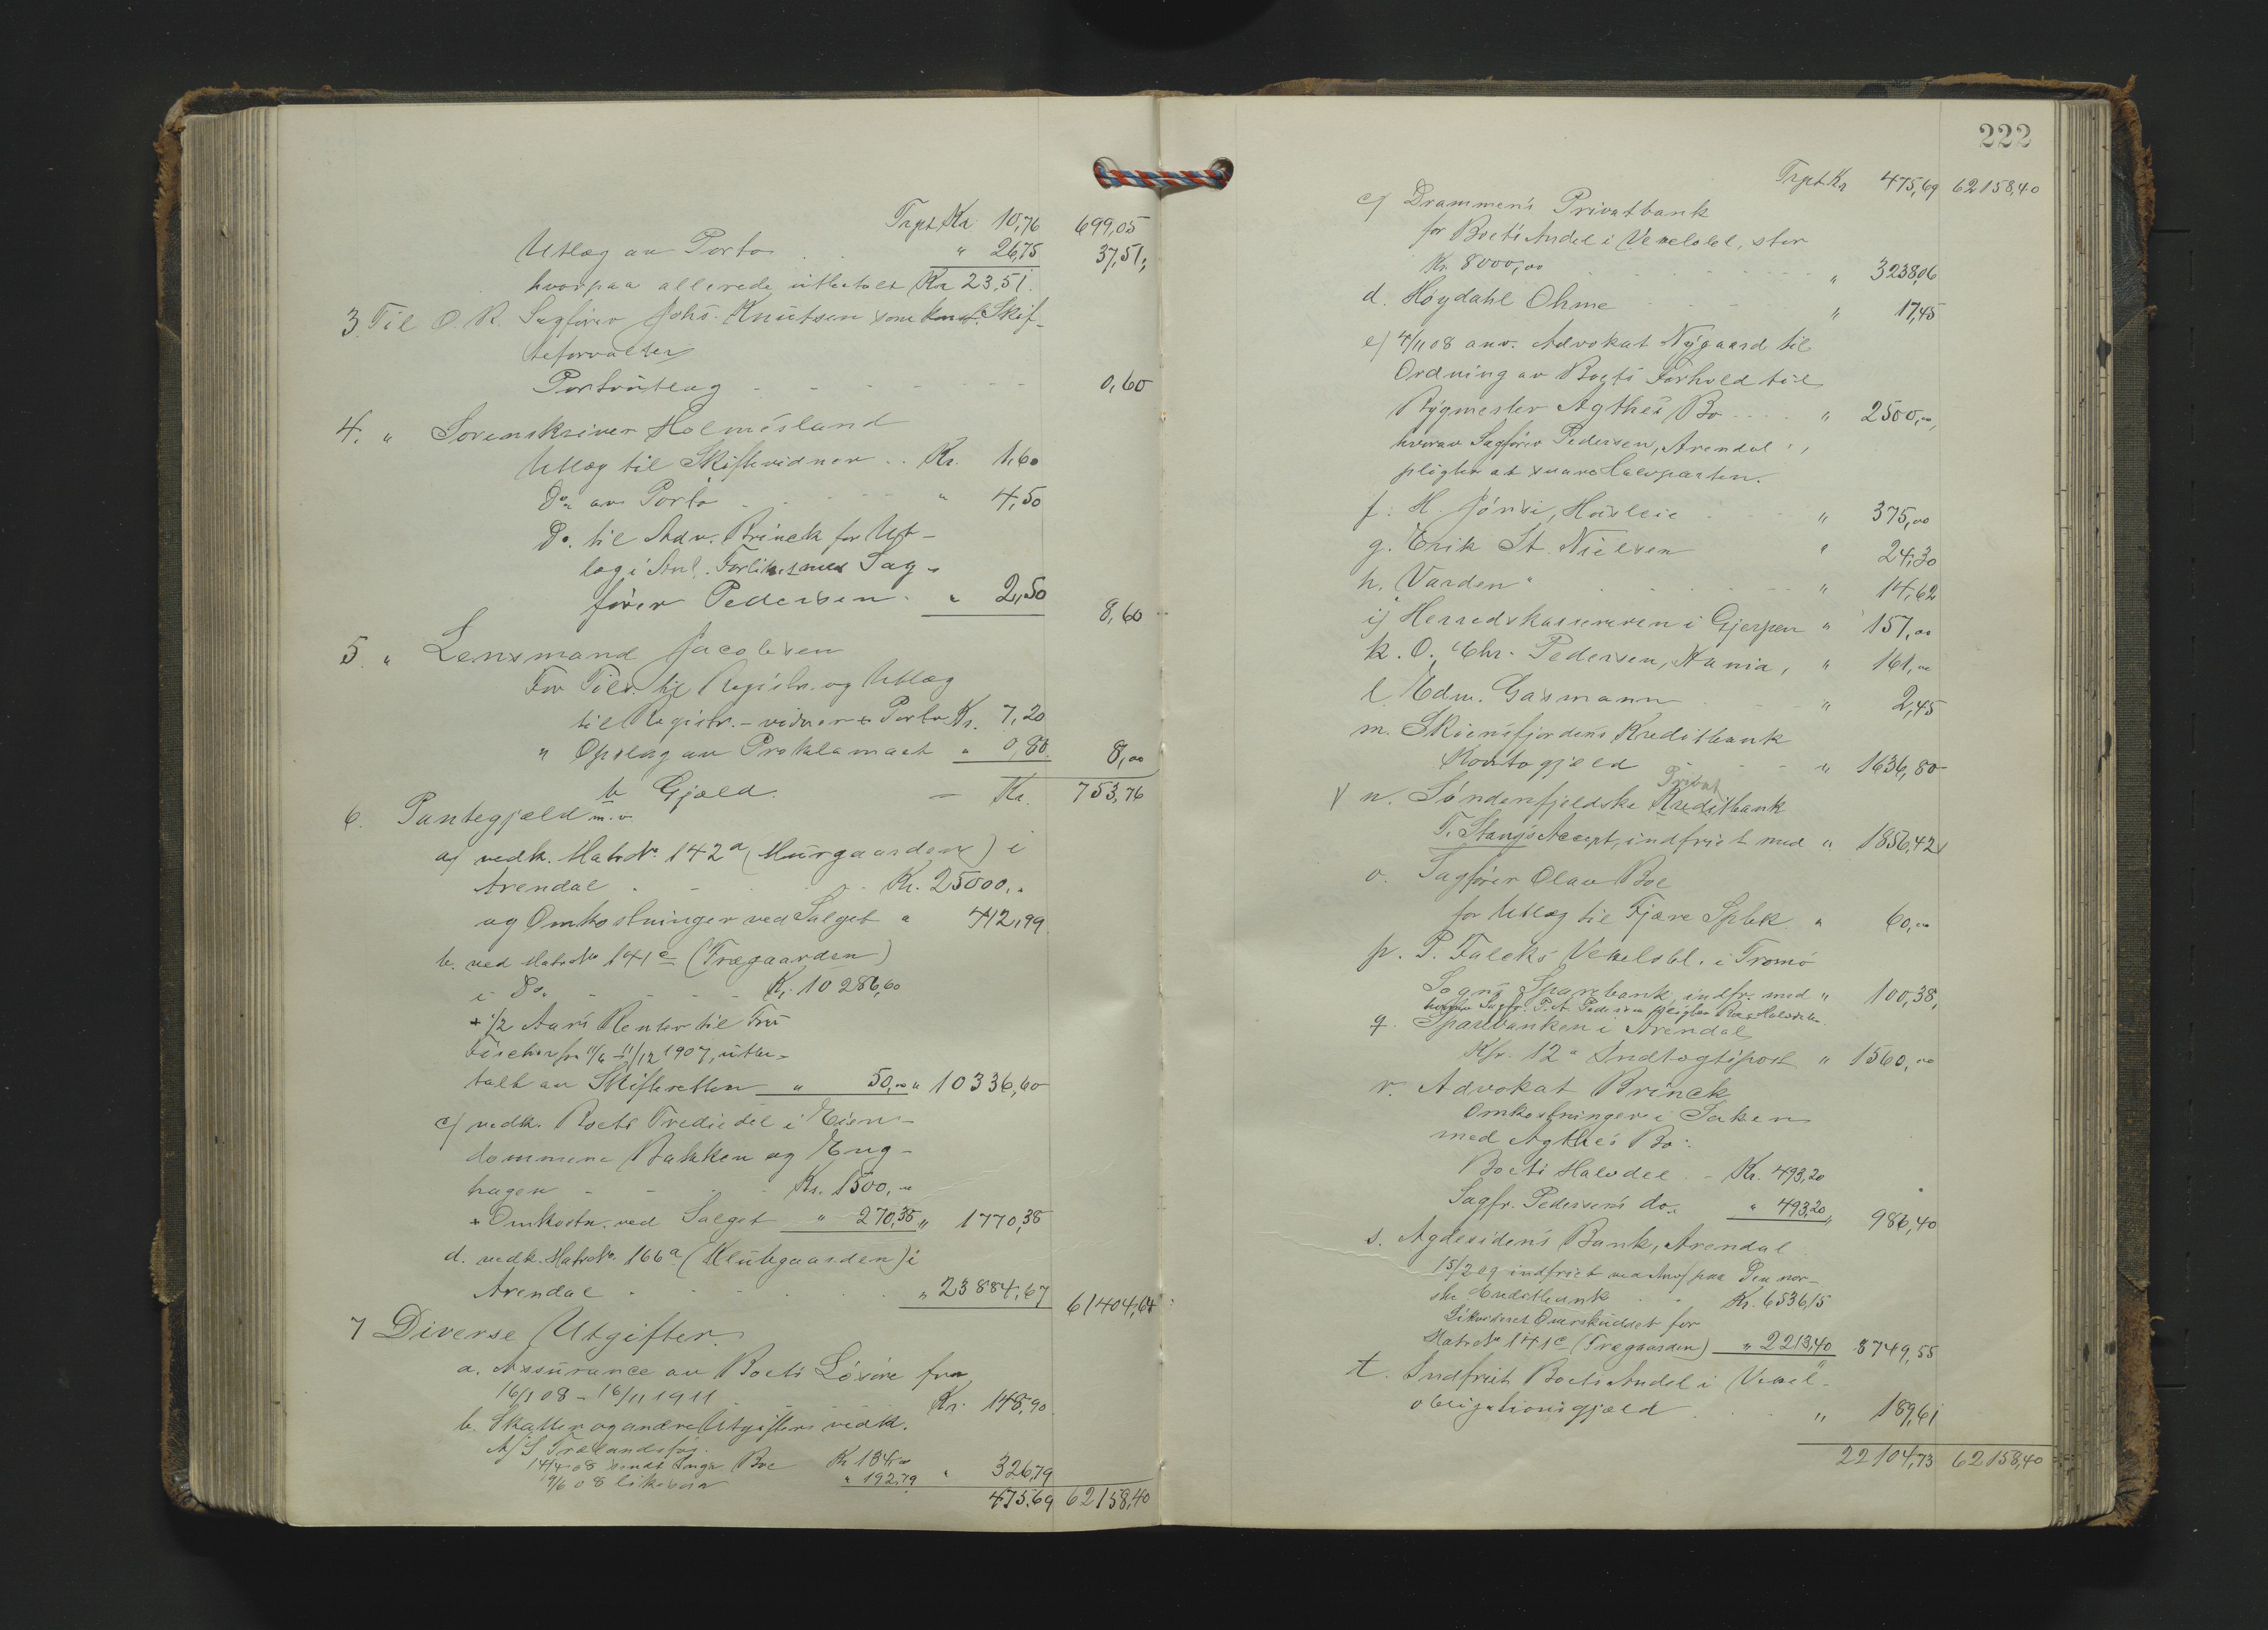 Trpt Kr 10,76 699,05
Utlæg av Porto . . " 26,75 37,51,
hvorpaa allerede utbetalt Kr 23,51.
3. Til O. R. Sagfører Johs. Knutsen som konst. Skif-
teforvalter
Portoutlæg - - - - - - 0,60
4. " Sorenskriver Holmesland
Utlæg til Skiftevidner . . Kr. 1,60
Do. av Porto - - - " 4,50
Do. til Adv. Brinck for Ut-
læg i Anl. Forliket med Sag-
fører Pedersen. " 2,50 8,60
5. " Lensmand Jacobsen
For Tilv. til Registr. og Utlæg
til Registr.-vidner + Porto Kr. 7,20
" Opslag av Proklamaet " 0,80 8,00
b Gjæld. - Kr. 753,76
6. Pantegjæld m. v.
a) vedk. MatrNo. 142a (Murgaarden) i
Arendal . - - . Kr. 25000,"
og Omkostninger ved Salget " 412,99
b. ved MatrNo 141c (Trægaarden)
i Do. - - - - Kr. 10286,60
+ 1/2 Aars Renter til Fru
Fischer fra 11/6 - 11/12 1907, utbe-
talt av Skifteretten " 50,00 " 10336,60
c) vedk. Boets Trediedel i Eien-
dommene Bakken og Eng-
hagen - - - Kr. 1500,"
+ Omkostn. ved Salget " 270,38 " 1770,38
d. vedk. MatrNo. 166a (Klubgaarden) i
Arendal . . . . . " 23884,67 61404,64
7 Diverse Utgifter.
a. Assurance av Boets Løsøre fra
16/1 08 - 16/11 1911 . . Kr. 148,90
b. Skatter og andre Utgifter vedk.
A/S Trælandsfos.
14/4 08 sendt Boe Kr 134,00
9/6 08 likesaa " 192,79 " 326,79
475,69 62158,40
222
Trpt Kr 475,69 62158,40
c) Drammens Privatbank
for Boets Andel i Vekselobl, stor
Kr. 8000,00 - - - - " 3238,06
d. Høydahl Ohme - - - " 17,45
e) 4/11 08 anv. Advokat Nygaard til
Ordning av Boets Forhold til
Bygmester Agthes Bo - - - " 2500,00,
hvorav Sagfører Pedersen, Arendal,
pligter at svare Halvparten.
f. H. Jónsi, Husleie - - " 375,00
g. Erik St. Nielsen " 24,30
h. "Varden" . . . - - - " 14,62
i) Herredskassereren i Gjerpen " 151,00
k. O. Chr. Pedersen, Kania, " 161,00
l. Edm. Gasmann - - - " 2,45
m. Skiensfjordens Kreditbank
Kontogjæld - - " 1636,80
V n. Søndenfjeldske Kreditbank
Privat
T. Stangs Accept, indfriet med " 1856,42
o. Sagfører Olav Boe
for Utlæg til Fjære Spbk. " 60,00
p. P. Falcks Vekselobl. i Tromø
Sogns Sparebank indfr. med " 100,38,
hvorav Sagfr. P. A. Pedersen pligter Boet Halvdelen.
q. Sparebanken i Arendal
Kfr. 12a Indtægtspost " 1560,00
r. Advokat Brinck
Omkostninger i Saken
med Agthes Bo:
Boets Halvdel . - Kr. 493,20
Sagfr. Pedersens do. " 493,20 " 986,40
s. Agdesidens Bank, Arendal
15/2 09 indfriet ved Anv. paa Den nor-
ske Creditbank . . Kr. 6536,15
Likvideret Overskudset for
MatrNo 141c (Trægaarden) " 2213,40 8749,55
t. Indfriet Boets Andel i Veksel-
obligationsgjæld . . . . " 189,61
22104,73 62158,40